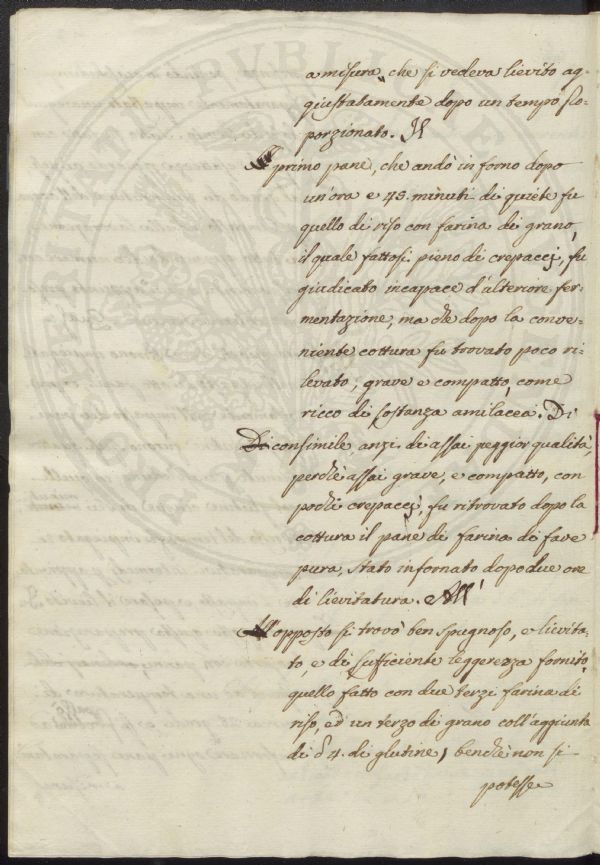 a misura, che si vedeva lievito ag-
giustatamente dopo un tempo pro-
porzionato. Il
primo pane, che andò in forno dopo
un'ora e 45. minuti di quiete fu
quello di riso con farina di grano,
il quale fattosi pieno di crepaccj, fu
giudicato incapace d'ulteriore fer-
mentazione, ma che dopo la conve-
niente cottura fu trovato poco ri-
levato, grave e compatto, come
ricco di sostanza amilacea. Di
consimile anzi di assai peggior qualità,
perchè assai grave, e compatto, con
pochi crepaccj, fu ritrovato dopo la
cottura il pane di farina di fave
pura, stato infornato dopo due ore
di lievitatura. All'
opposto si trovò ben spugnoso, e lievita-
to, e di sufficiente leggerezza fornito,
quello fatto con due terzi farina di
riso, ed un terzo di grano coll'aggiunta
di 4. di glutine, benchè non si
potesse